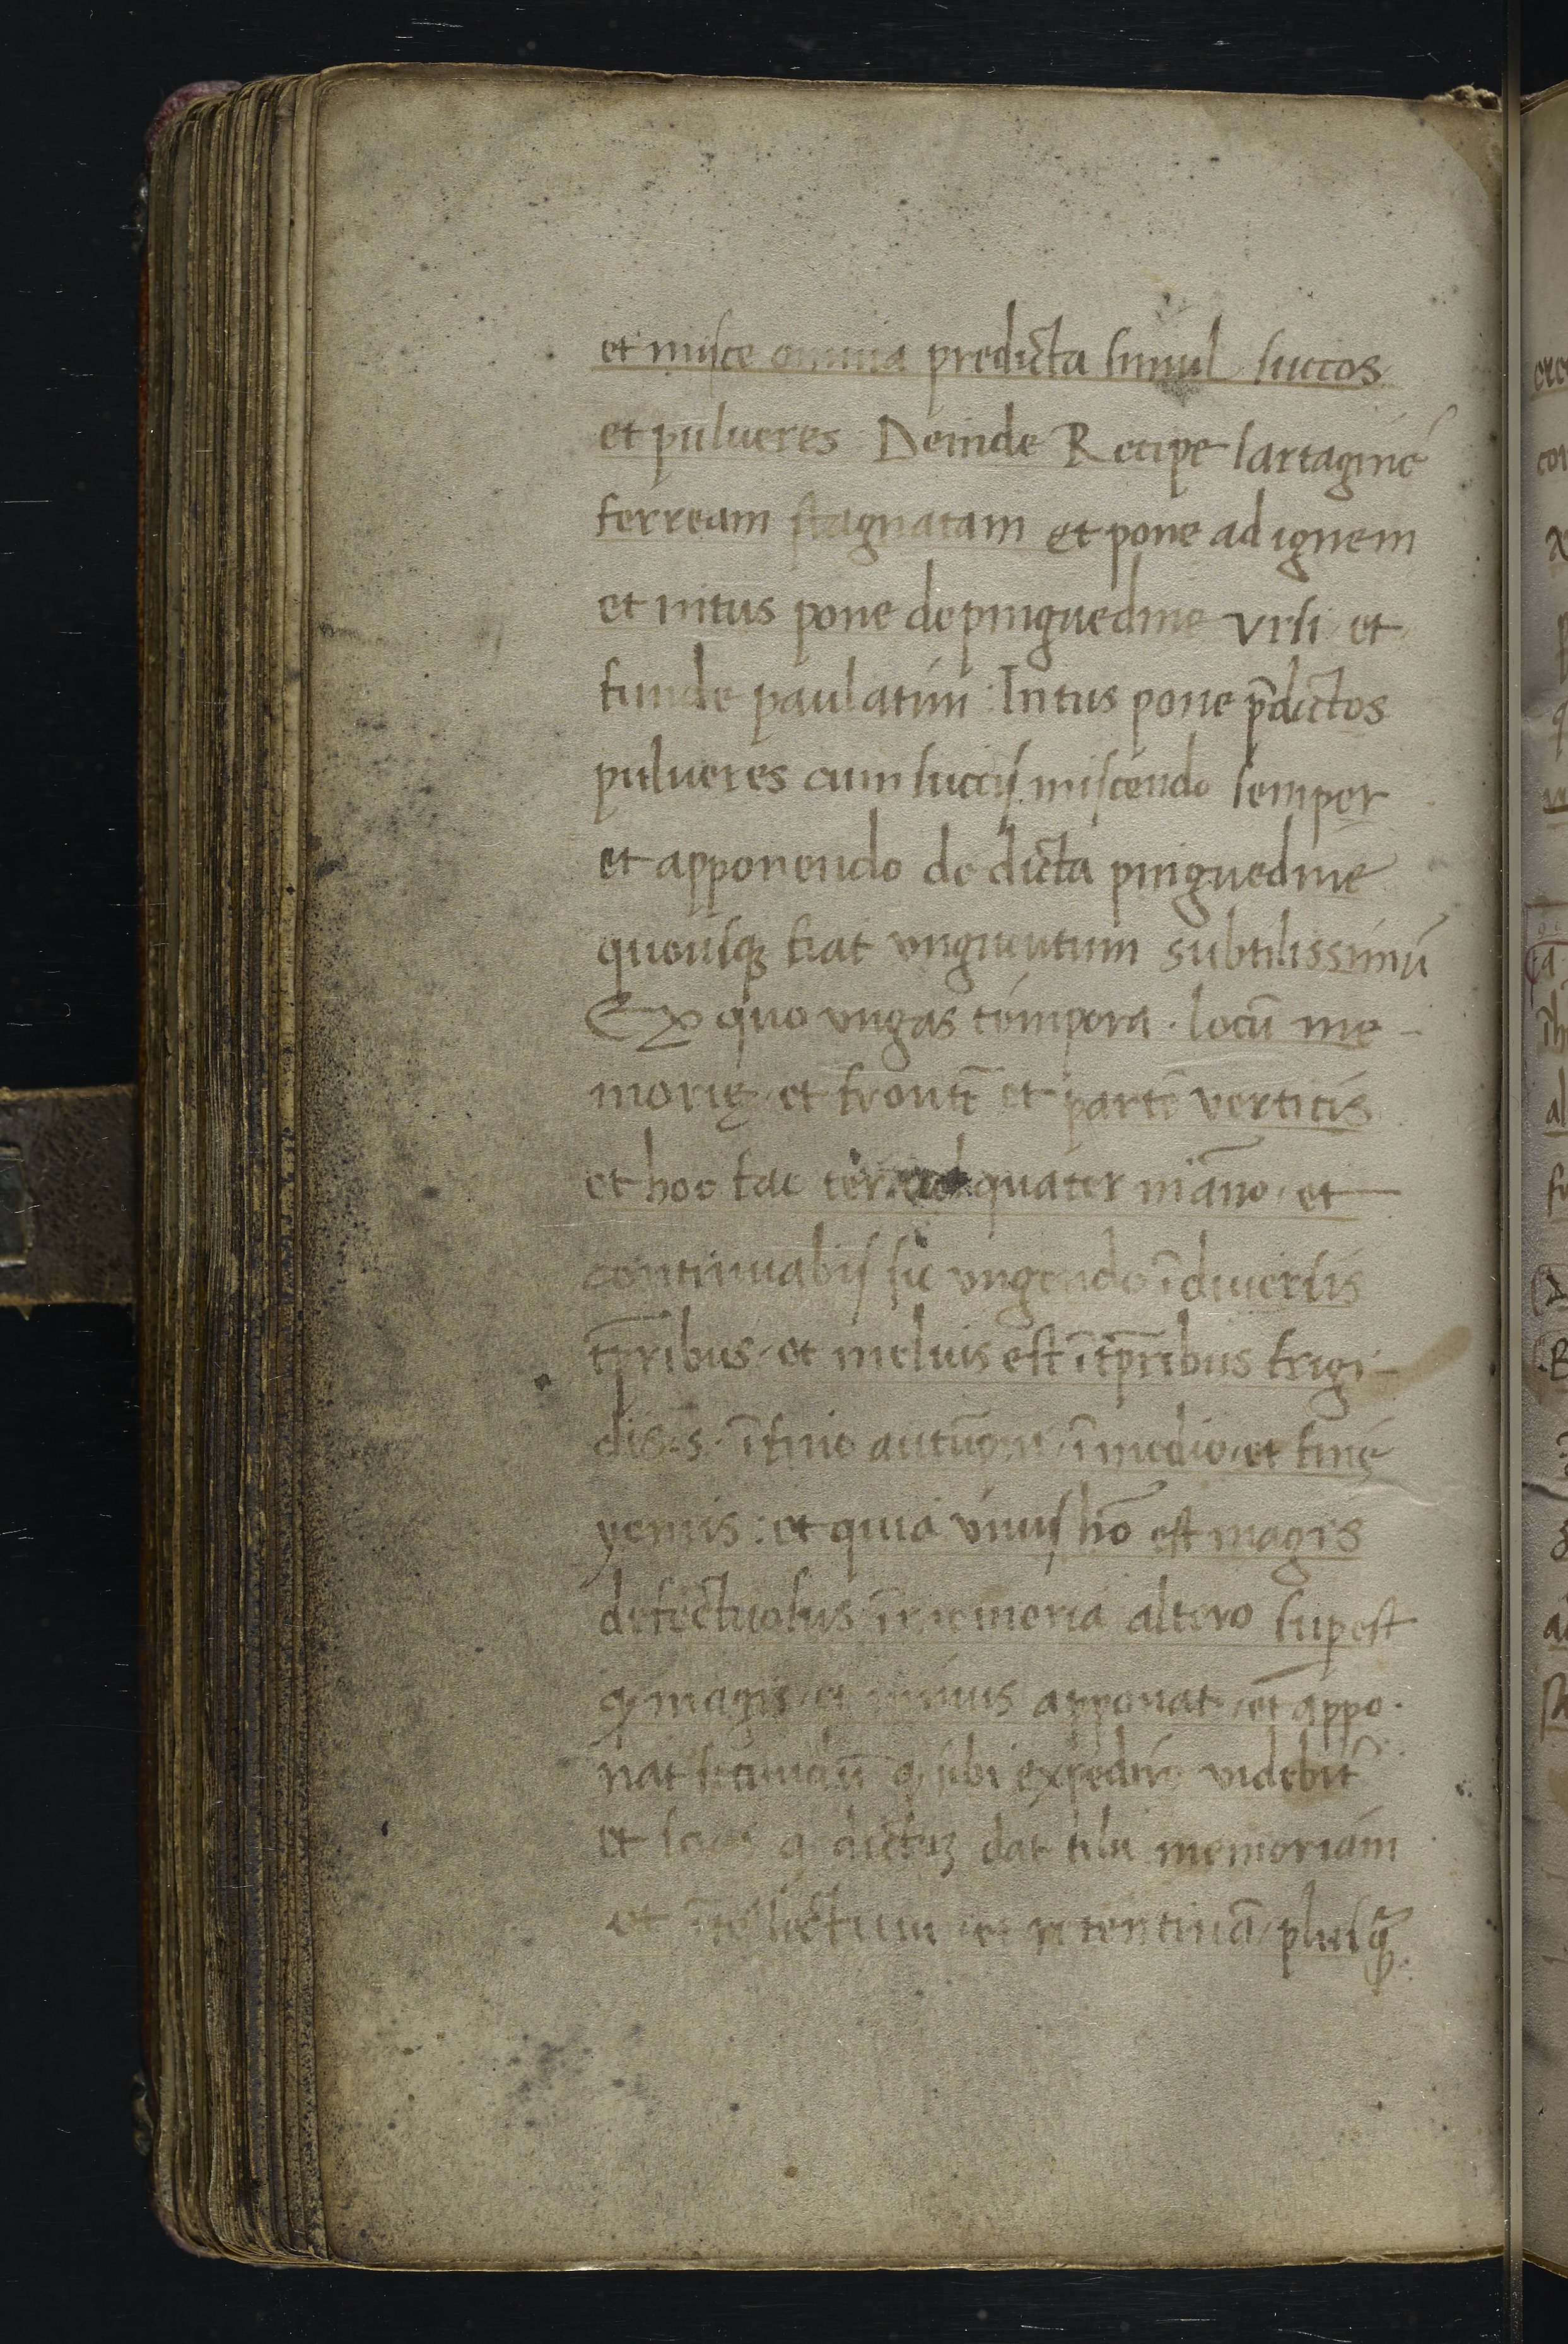 et misce omnia predicta simul succos
et pulueres Deinde Recipe sartaginē
ferream stagnatam et pone ad ignem
et intus pone de pinguedine vrsi et
funde paulatim : Intus pone p̄dictos
pulueres cum succis miscendo semper
et apponendo de dicta pinguedine
quousqȝ fiat vnguentum subtilissimū
Ex quo vngas tempora . locū me -
morię et frontē et partē verticis
et hoc fac ter quater in āno . et
continuabis sic vngendo ī diuersis
tp̄ribus . et melius est ī tp̄ribus frigi -
dis . s . ī autūpni . ī medio . et finę
yemis : et quia vnus hō est magis
defectuosus ī memoria altero sup est
ꝙ magis et minus apponat . et appo .
nat secundū ꝙ sibi expedire videbit̄
et dat tibi memoriam
et ītellectum et retentiuā plusꝗ̄